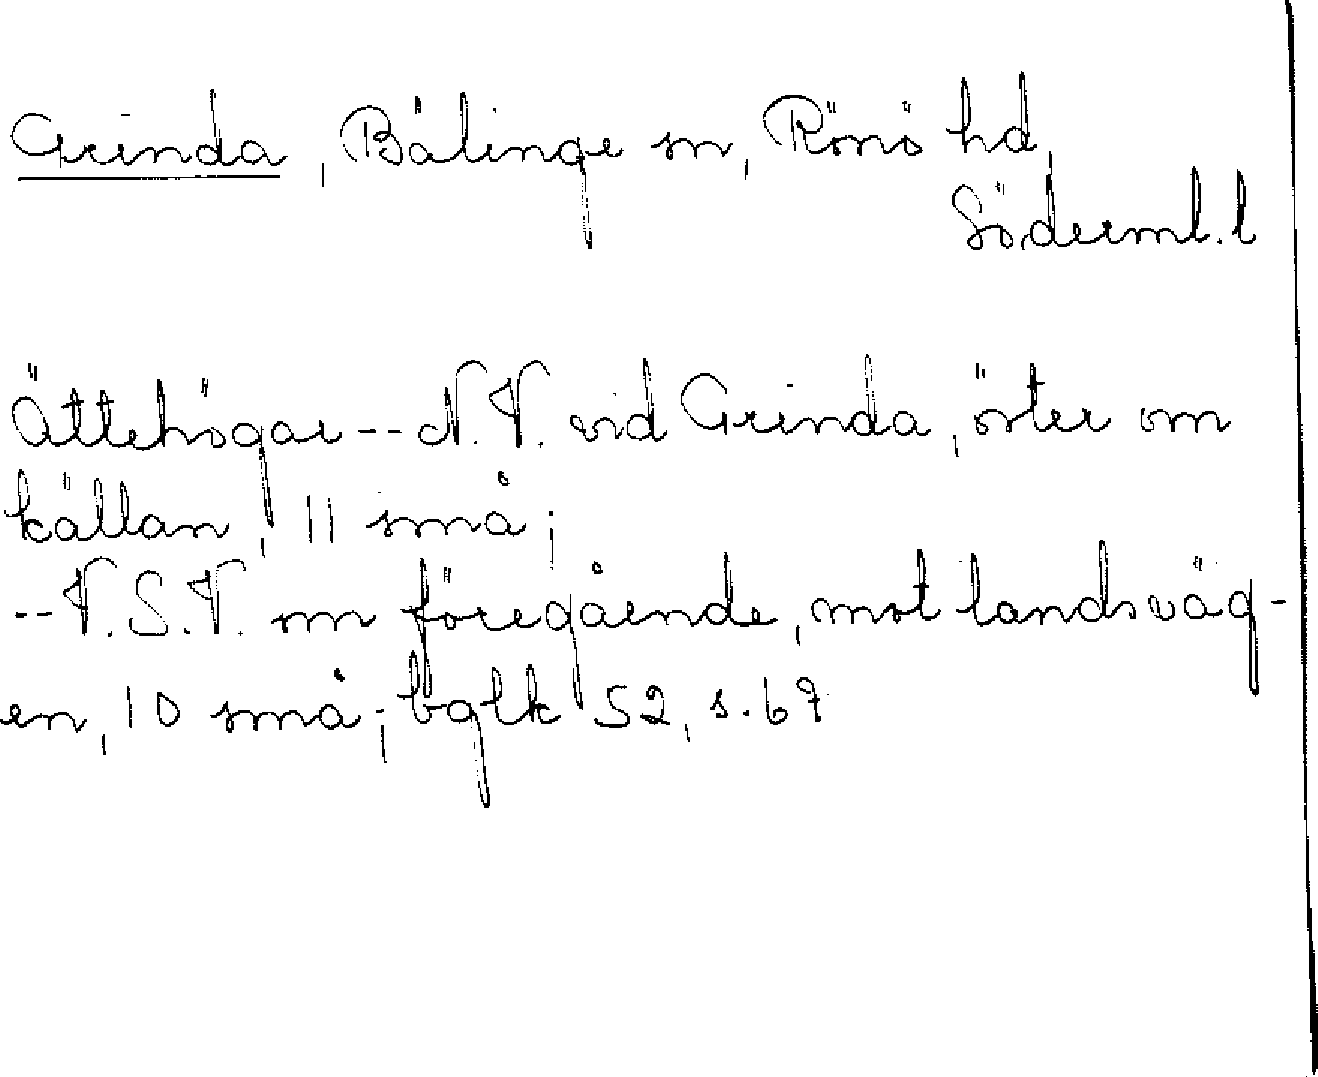 Grinda, Bälinge sn, Rönö hd,
Söderml. l
Ättehögar -- N.V. vid Grinda, öster om
källan, 11 små;
-- V.S.V. om föregående, mot landsväg-
en, 10 små; bglk 52, s. 67